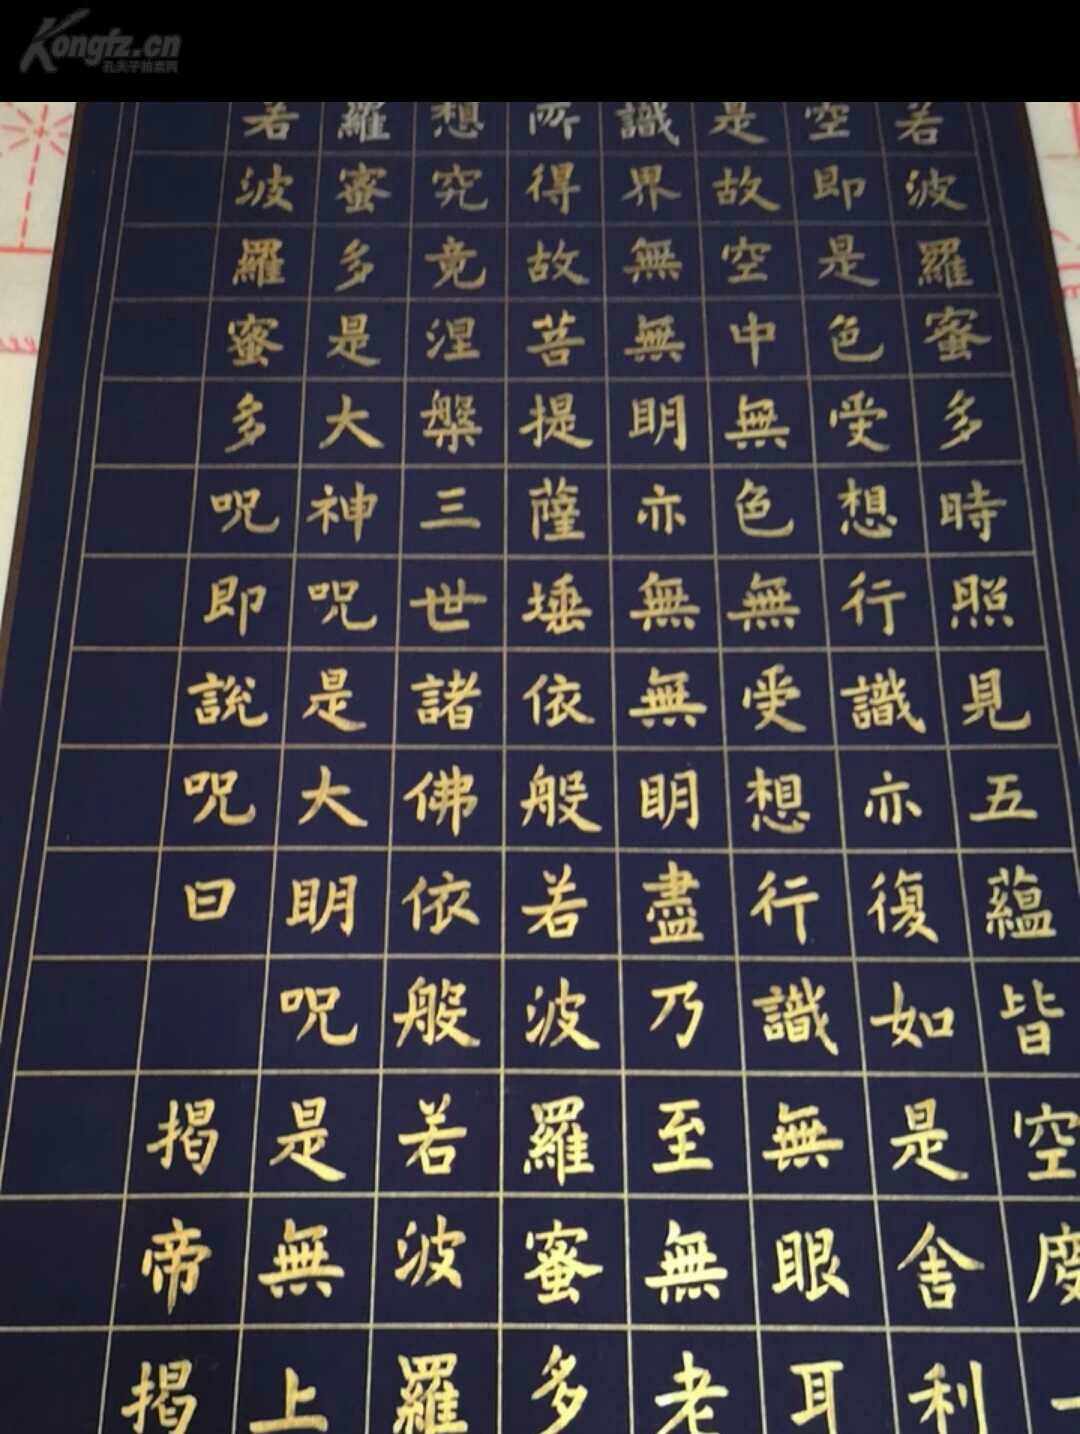 Kongfz.cn
孔夫子拍卖网
若波羅蜜多時照見五蘊皆空度
空即是色受想行識亦復如是舍利
是故空中無色無受想行識無眼耳
識界無無明亦無無明盡乃至無老
所得故菩提薩埵依般若波羅蜜多
想究竟涅槃三世諸佛依般若波羅
羅蜜多是大神呪是大明呪是無上
若波羅蜜多呪即說呪曰 揭帝揭